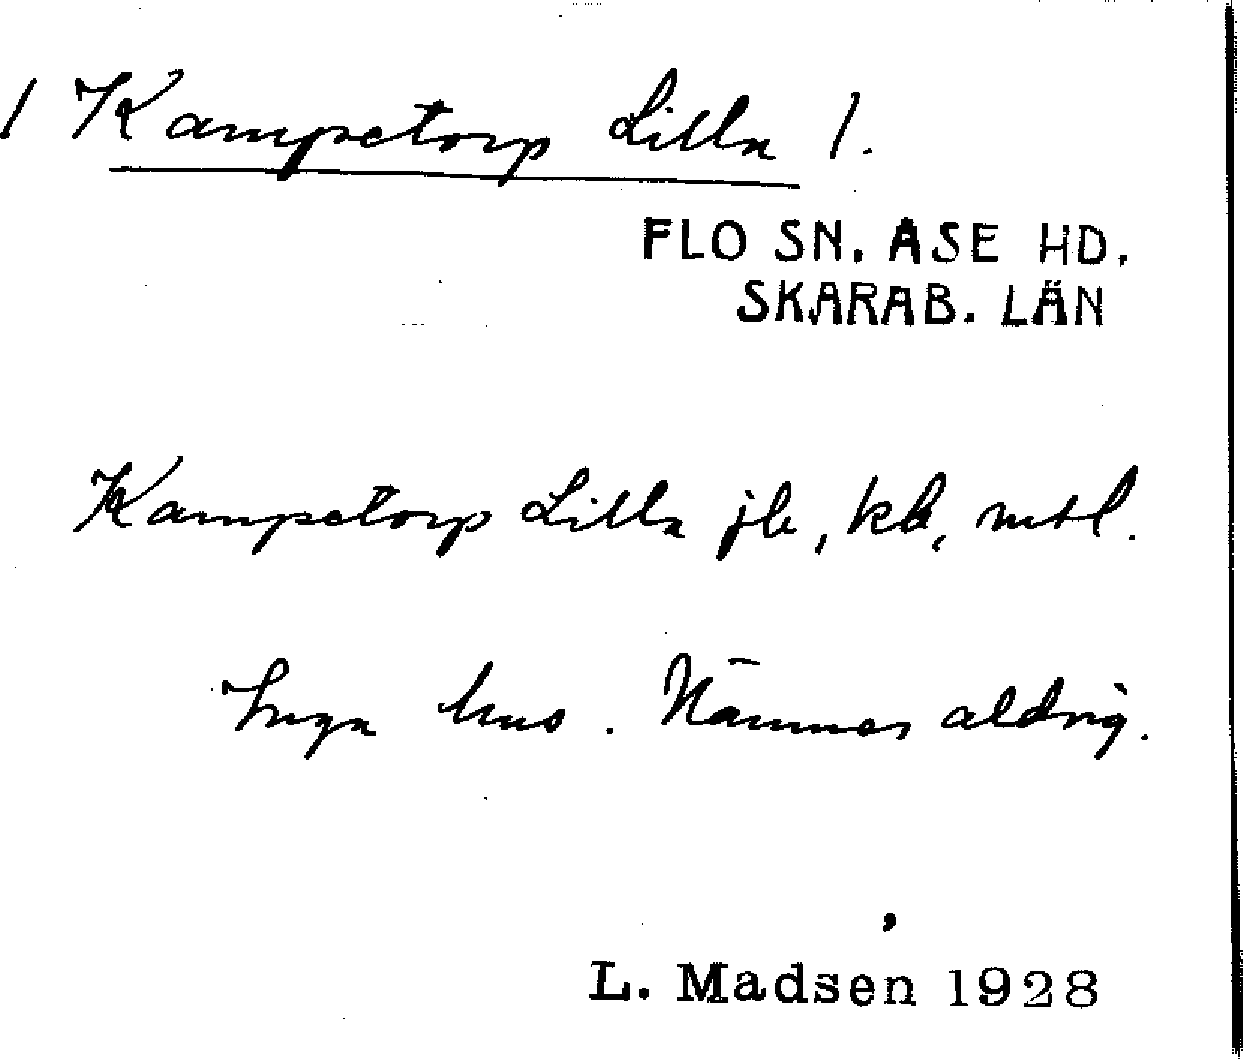 / Kampetorp Lilla /.
FLO SN. ÅSE HD.
SKARAB. LÄN
Kampetorp Lilla jb, kb, mtl.
Inga hus. Nämnes aldrig.
L. Madsen 1928